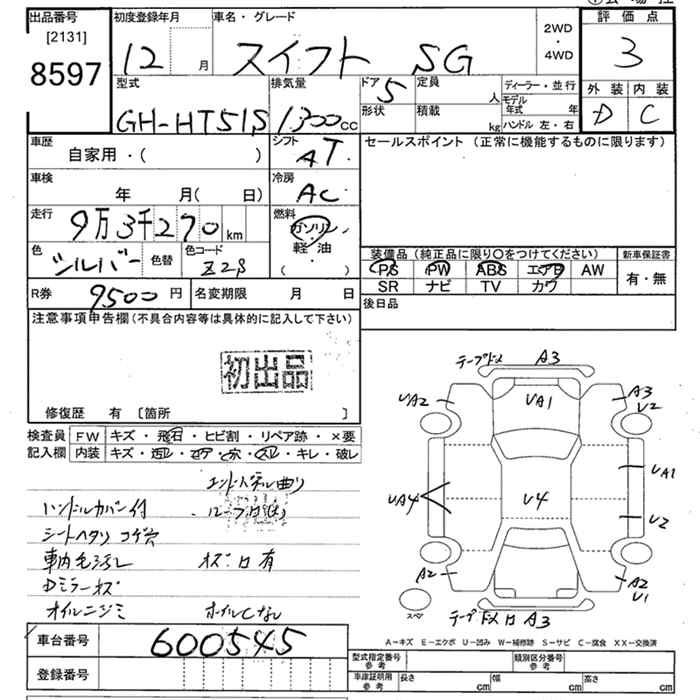 出品番号
[2131]
8597
初度登録年月
12 月
車名・グレード
スイフト SG
2WD
・
4WD
評価点
3
外装 内装
D C
型式
GH-HT51S
排気量
1300cc
ドア 5
形状
定員 人
積載 kg
ディーラー・並行
モデル年式 年
ハンドル 左・右
車歴
自家用・( )
シフト
AT
セールスポイント (正常に機能するものに限ります)
車検
年 月( 日)
冷房
AC
走行
9万3千270km
燃料
ガソリン
・
軽・油
( )
色
シルバー
色替
色コード
Z2S
装備品 (純正品に限り〇をつけてください)
PS PW ABS エアB AW
SR ナビ TV カワ
新車保証書
有・無
R券
9500円
名変期限 月 日
後日品
注意事項申告欄 (不具合内容等は具体的に記入して下さい)
初出品
修復歴 有 [箇所 ]
検査員
記入欄
FW キズ・飛石・ヒビ割・リペア跡・×要
内装 キズ・汚レ・コゲ・穴・スレ・キレ・破レ
エンドパネル曲り
ハンドルカバー付
シートヘタリ コゲ穴
車内毛汚レ
キズ凹有
Dミラーキズ
オイルニジミ
ホイルCなし
テープドメ A3
UA2
UA1
A3
U2
UA1
UA4
U4
U2
A2
A2
U1
スペア
テープドメ凹A3
A-キズ E-エクボ U-凹み W-補修跡 S-サビ C-腐食 XX-交換済
車台番号
600545
登録番号
型式指定番号
参考
類別区分番号
参考
車庫証明用
参考
長さ cm
幅 cm
高さ cm